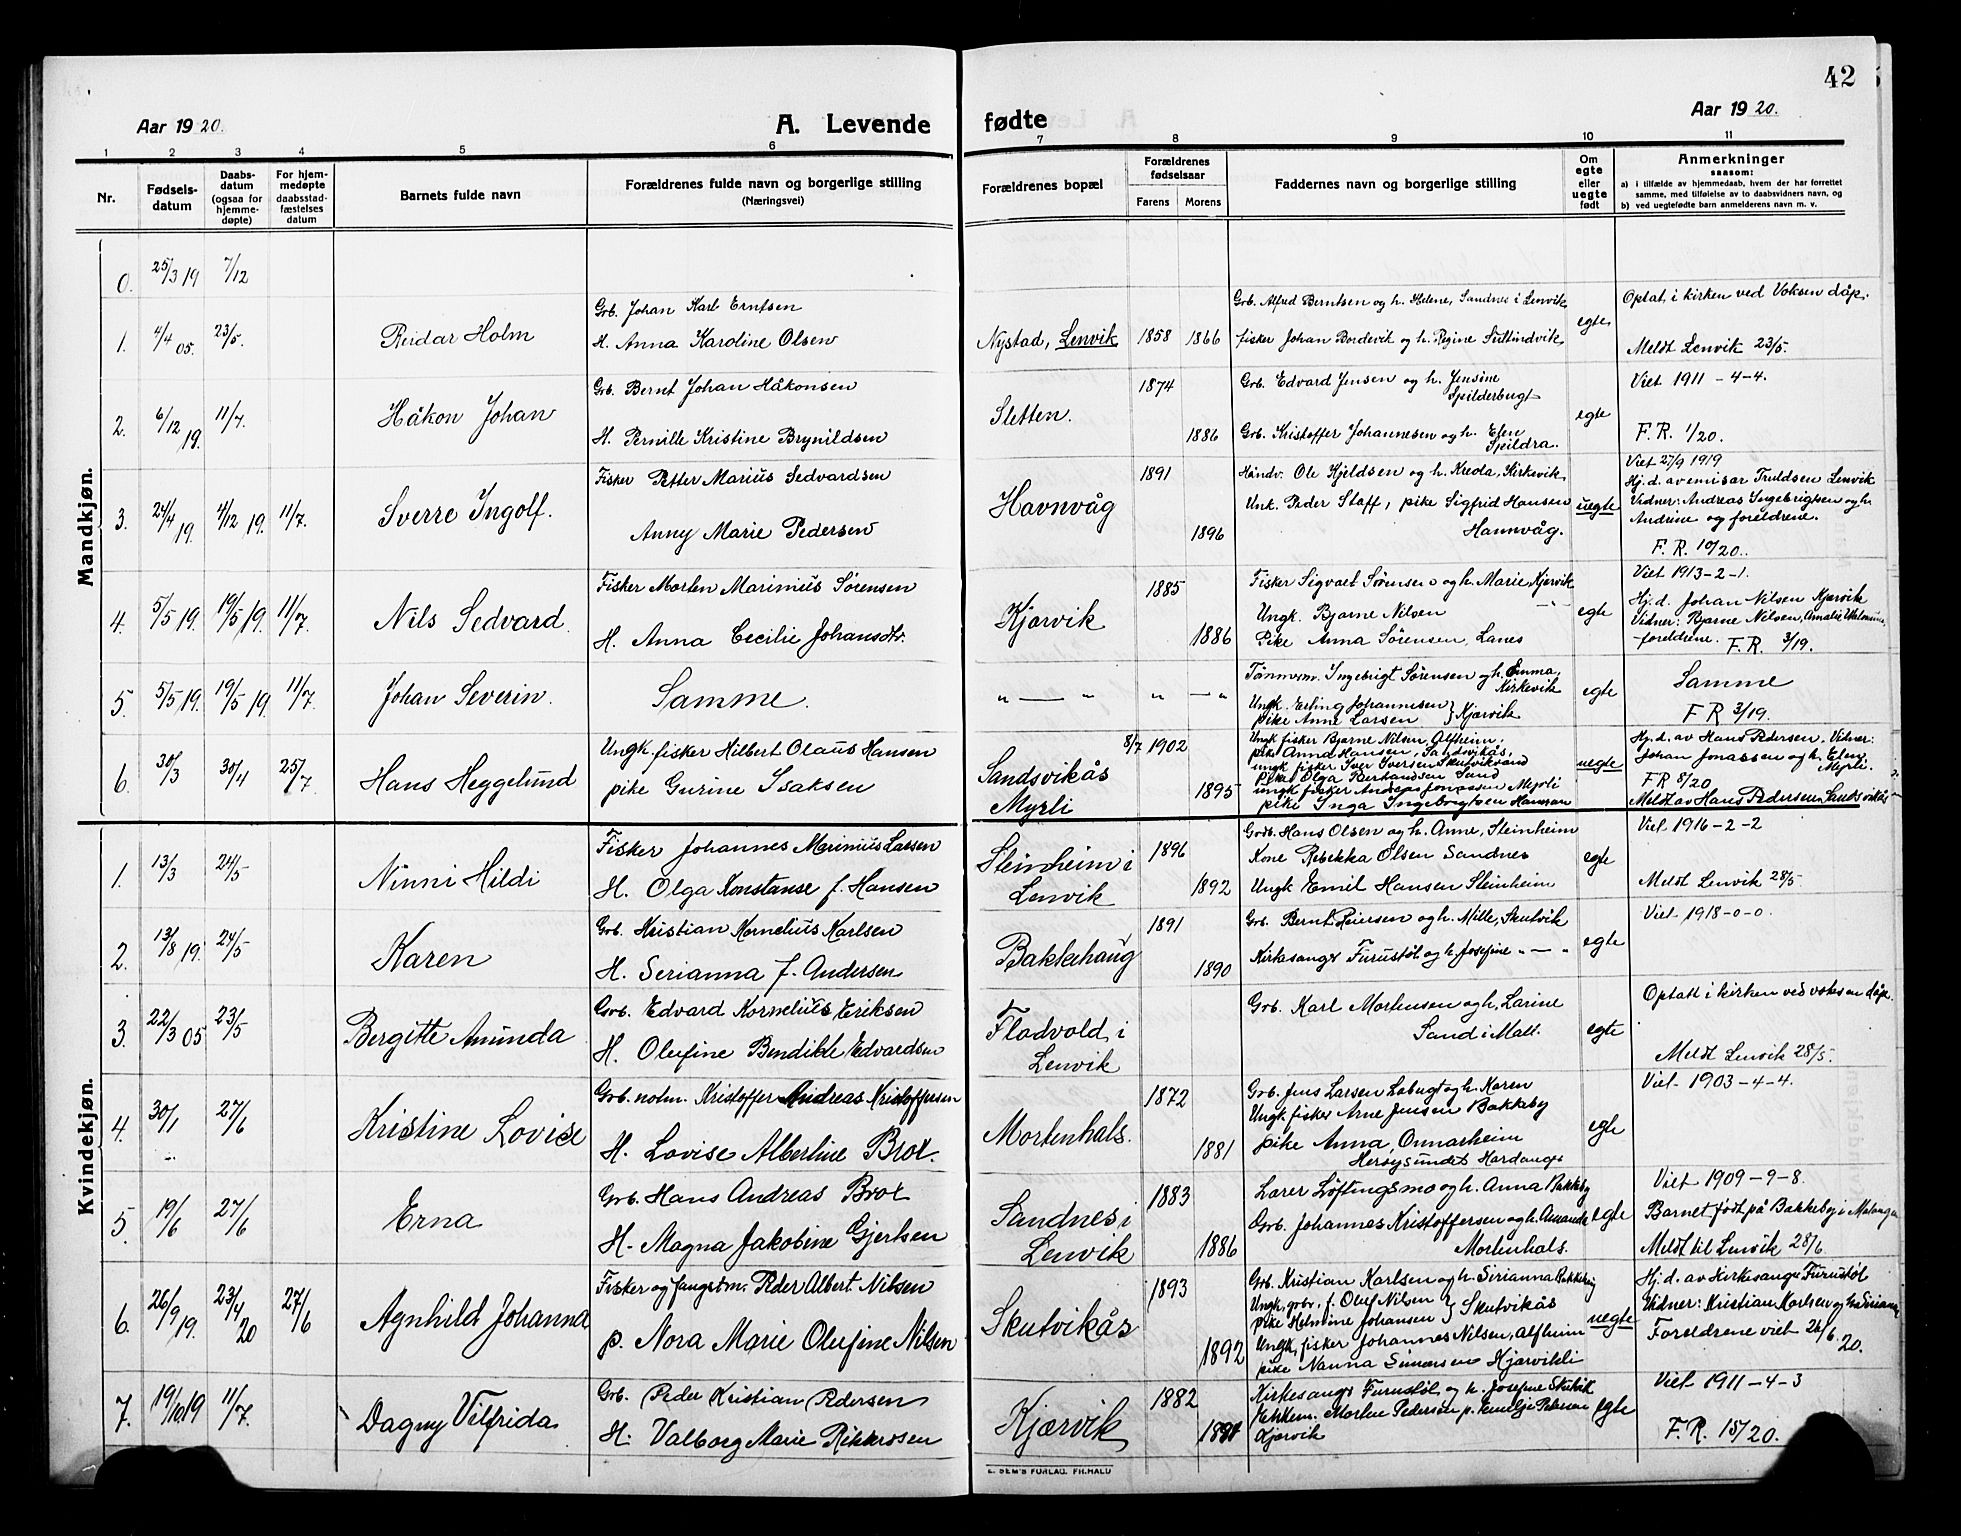 42
Aar 1920.
A. Levende fødte
Aar 1920.
1 2 3 4 5 6 7 8 9 10 11
Nr.
Fødselsdatum
Daabsdatum (ogsaa for hjemmedøpte)
For hjemmedøpte daabsstadfæstelses datum
Barnets fulde navn
Forældrenes fulde navn og borgerlige stilling
(Næringsvei)
Forældrenes bopæl
Forældrenes fødselsaar
Farens Morens
Faddernes navn og borgerlige stilling
Om egte eller uegte født
Anmerkninger
saasom:
a) i tilfælde av hjemmedaab, hvem der har forrettet samme, med tilføielse av to daabsvidners navn, og
b) ved uegtefødte barn anmelderens navn m. v.
Mandkjøn.
0. 25/3 19 7/12
1. 4/4 05. 23/5. Reidar Holm
Grb. Johan Karl Erntsen
H. Anna Karoline Olsen
Nystad, Lenvik 1858 1866
Grb. Alfred Berntsen og h. Helene, Sandnes i Lenvik
fisker Johan Bordevik og h. Regine
egte
Optat i kirken ved Voksen dåp.
Meldt Lenvik 23/5.
2. 6/12 19. 11/4. Håkon Johan
Grb. Bernt Johan Håkonsen
H. Pernille Kristine Brynildsen
Sletten. 1874 1886
Grb. Edvard Jensen og h. Jensine
Spilderbugt
Grb. Kristoffer Johannesen og h. Elen
Spildra.
egte
Viet 1911 - 4-4.
F.R. 1/20.
3. 24/4 19. 4/12 19. 11/7. Sverre Ingolf.
Fisker Petter Marius Sedvardsen
Anny Marie Pedersen
Havnvåg 1891 1896
Håndv. Ole Kjeldsen og h. Kreola, Kirkevik
Unk. Peder Staff, pike Sigfrid Hansen
Hannvåg.
uegte
Viet 27/9 1919
Hj. d. av emisær Truldsen Lenvik
Vidner: Andreas Ingebrigtsen og h.
Andrine og foreldrene.
F.R. 10/20.
4. 5/5 19. 19/5 19. 11/7 Nils Sedvard.
Fisker Morten Marinius Sørensen
H. Anna Cecilie Johansdtr.
Kjorvik 1885 1886
Fisker Sigvart Sørensen og h. Marie, Kjervik
Ungk. Bjarne Nilsen " — "
Pike Anna Sørensen, Lanes
egte
Viet 1913-2-1.
Hj. d. Johan Nilsen Kjærvik
Vidner: Bjarne Nilsen, Amalie
foreldrene. F.R. 3/19.
5. 5/5 19. 19/5 19. 11/7 Johan Severin.
Samme.
" — " " " — "
Tømmerm. Ingebrigt Sørensen og h. Emma,
Kirkevik
Ungk. Erling Johannesen
pike Anne Larsen } Kjørvik
egte
Samme
F R 3/19.
6. 30/3 30/4 25/7 Hans Heggelund
Ungk. fisker Hilbert Olaus Hansen
pike Gurine Isaksen
Sandsvikås
Myrli
8/7 1902 1895
Ungk fisker Bjarne Nilsen, Alfheim,
pike Anna Hansen, Sandsvikås,
ungk fisker Iver Iversen Skutviksand
Pike Olga Berthandsen Sand
ungk fisker Andreas Jonassen Myrli
pike Inga Ingeborgtven Hanssen
uegte
Hj. d. av Hans Pedersen. Vidner:
Johan Jonassen og h. Elen,
Myrli.
FR 8/20
Meldt av Hans Pedersen, Sandsvikås
Kvindekjøn.
1. 13/3 24/5 Ninni Hildi
Fisker Johannes Marinius Larsen
H. Olga Konstanse f. Hansen
Steinheim i
Lenvik
1896 1892
Grdb. Hans Olsen og h. Anne, Steinheim
Kone Rebekka Olsen Sandnes
Ungk Emil Hansen Steinheim
egte
Viet 1916-2-2
Meldt Lenvik 28/5
2. 13/8 19. 24/5 Karen
Grb. Kristian Kornelius Karlsen
H. Serianna f. Andersen
Bakkehaug 1891 1890
Grb. Bernt Reiersen og h. Mille, Skutvik
Kirkesanger Furustøl og h. Josefine " — "
egte
Viet 1918-0-0.
3. 22/3 05 23/5 Bergitte Amunda
Grb. Edvard Kornelius Eriksen
H. Olufine Bendikte Edvardsen
Flodvold i
Lenvik
Grb. Karl Mortensen og h. Larine
Sand i Malt.
egte
Optatt i kirken ved voksen dåp.
Meldt Lenvik 28/5.
4. 30/1 27/6 Kristine Lovise
Grb. notm. Kristoffer Andreas Kristoffersen
H. Lovise Albertine Brox.
Mortenhals. 1872 1881
Grb. Jens Larsen Labugt og h. Karen
Ungk. fisker Arne Jensen Bakkeby
pike Anna Onnarheim
Herøysundet Hardanger
egte
Viet 1903-4-4.
5. 19/6 27/6 Erna
Grb. Hans Andreas Brox
H. Magna Jakobine Gjertsen
Sandnes i
Lenvik
1883 1886
Lærer Løftingsmo og h. Anna Bakkeby
Grb. Johannes Kristoffersen og h. Amanda
Mortenhals.
egte
Viet 1909-9-8.
Barnet født på Bakkeby i Malangen
Meldt til Lenvik 28/6
6. 26/9 19. 23/4 20 27/6 Agnhild Johanna
Fisker og fangstm. Peder Albert Nilsen
p. Nora Marie Olufine Nilsen
Skutvikås 1893 1892
Grb. Kristian Karlsen og h. Serianna Bakkeby
Ungk. grbr. f. Oluf Nilsen
pike Helmine Johansen } Skutvikås
Ungk. fisker Johannes Nilsen, Alfheim
pike Nanna Simonsen Kjarvikli
uegte
Hj. d. av Kirkesanger Furustøl
Vidner: Kristian Karlsen og h. Serianna
Foreldrene viet 26/6 20.
7. 19/10 19 11/7 Dagny Vilfrida
Grb. Peder Kristian Pedersen
H. Valborg Marie Rikkersen
Kjærvik 1882 1891
Kirkesanger Furustøl og h. Josefine Skutvik
Mortin Pedersen p. Emilje Petersen
Kjørvik
egte
Viet 1911-4-3
F.R. 15/20.
E. SEM'S FORLAG. FR.HALD